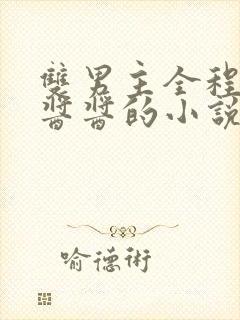 雙男主全程
醬醬的小說
喻德術